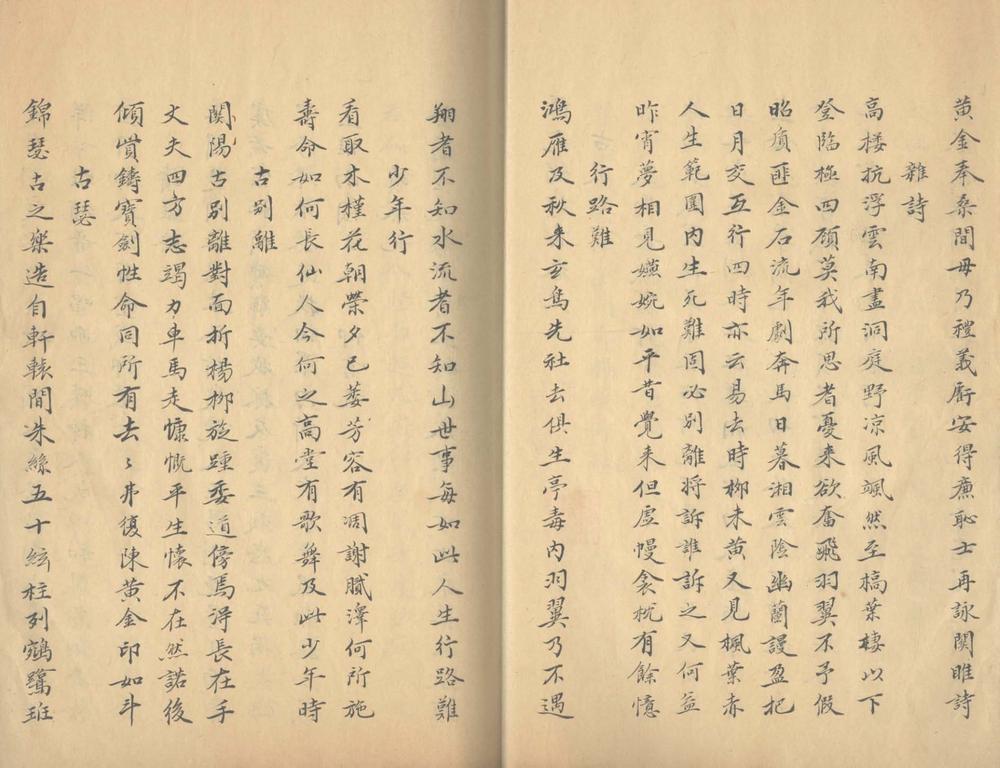 黄金奉桑間毋乃禮義𢊍安得㢘恥士再詠関雎詩
雜詩
高楼抗浮雲南盡洞庭野凉風颯然至槁葉棲以下
登臨極四顧莫我所思者憂来欲奮飛羽翼不予假
昭質匪金石流年劇奔馬日暮湘雲陰幽蘭謾盈把
日月交五行四時亦云易去時柳未黄又見楓葉赤
人生範圍内生死難固必别離将訴誰訴之又何益
昨宵夢相見嬿婉如平昔覺来但虚幔衾枕有餘憶
行路難
鴻雁及秋来玄鳥先社去俱生亭毒内羽翼乃不遇
翔者不知水流者不知山世事每如此人生行路難
少年行
看取木槿花朝榮夕已萎芳容有凋謝膩澤何所施
壽命如何長仙人今何之高堂有歌舞及此少年時
古别離
関陽古别離對面折楊柳旋踵委道傍焉得長在手
丈夫四方志竭力車馬走慷慨平生懷不在然諾後
傾貲鑄寶劍性命同所有去〻弗復陳黄金印如斗
古瑟
錦瑟古之樂造自軒轅間洙絲五十絃柱列鵷鷺班